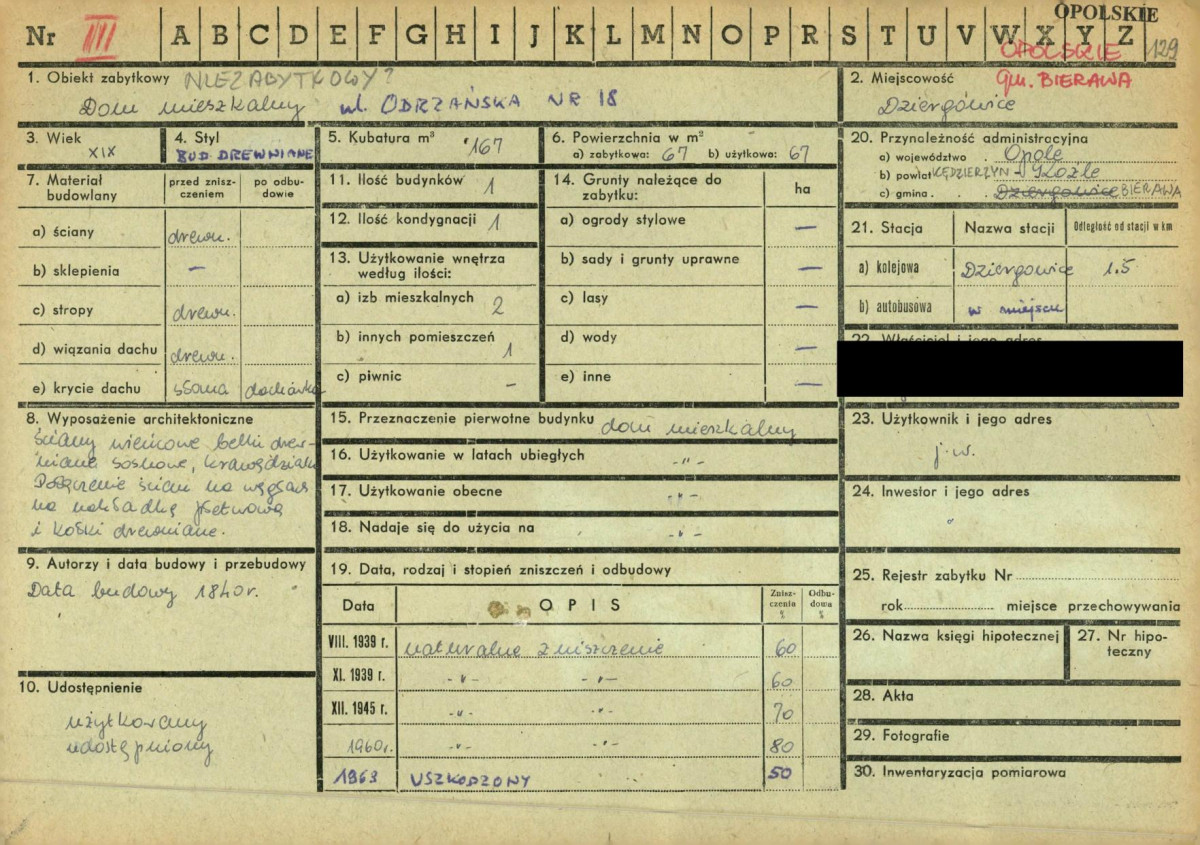 OPOLSKIE
Nr III A B C D E F G H I J K L M N O P R S T U V W X Y Z
OPOLSKIE 129
1. Obiekt zabytkowy NIEZABYTKOWY?
Dom mieszkalny ul. ODRZAŃSKA NR 18
2. Miejscowość gm. BIERAWA
Dziergowice
3. Wiek
XIX
4. Styl
BUD DREWNIANE
5. Kubatura m³ 167
6. Powierzchnia w m²
a) zabytkowa: 67 b) użytkowa: 67
7. Materiał budowlany
przed zniszczeniem
po odbudowie
a) ściany drewn.
b) sklepienia —
c) stropy drewn.
d) wiązania dachu drewn.
e) krycie dachu słoma dachówka
8. Wyposażenie architektoniczne
ściany wieńcowe belki drew-
niane sosnowe, krawędziaki
Połączenie ścian na węgłach
na nakładkę
i kołki drewniane.
9. Autorzy i data budowy i przebudowy
Data budowy 1840 r.
10. Udostępnienie
użytkowany
udostępniony
11. Ilość budynków 1
12. Ilość kondygnacji 1
13. Użytkowanie wnętrza
według ilości:
a) izb mieszkalnych 2
b) innych pomieszczeń 1
c) piwnic –
14. Grunty należące do
zabytku: ha
a) ogrody stylowe —
b) sady i grunty uprawne —
c) lasy —
d) wody —
e) inne —
15. Przeznaczenie pierwotne budynku dom mieszkalny
16. Użytkowanie w latach ubiegłych -"-
17. Użytkowanie obecne -"-
18. Nadaje się do użycia na -"-
19. Data, rodzaj i stopień zniszczeń i odbudowy
Data OPIS Zniszczenia % Odbudowa %
VIII. 1939 r. naturalne zniszczenie 60
XI. 1939 r. -"- -"- 60
XII. 1945 r. -"- -"- 70
1960 r. -"- -"- 80
1963 USZKODZONY 50
20. Przynależność administracyjna
a) województwo . Opole
b) powiat KĘDZIERZYN - Koźle
c) gmina . . Dziergowice BIERAWA
21. Stacja Nazwa stacji Odległość od stacji w km
a) kolejowa Dziergowice 1.5
b) autobusowa w miejscu
22. Właściciel i jego adres
23. Użytkownik i jego adres
j.w.
24. Inwestor i jego adres
25. Rejestr zabytku Nr
rok miejsce przechowywania
26. Nazwa księgi hipotecznej
27. Nr hipoteczny
28. Akta
29. Fotografie
30. Inwentaryzacja pomiarowa